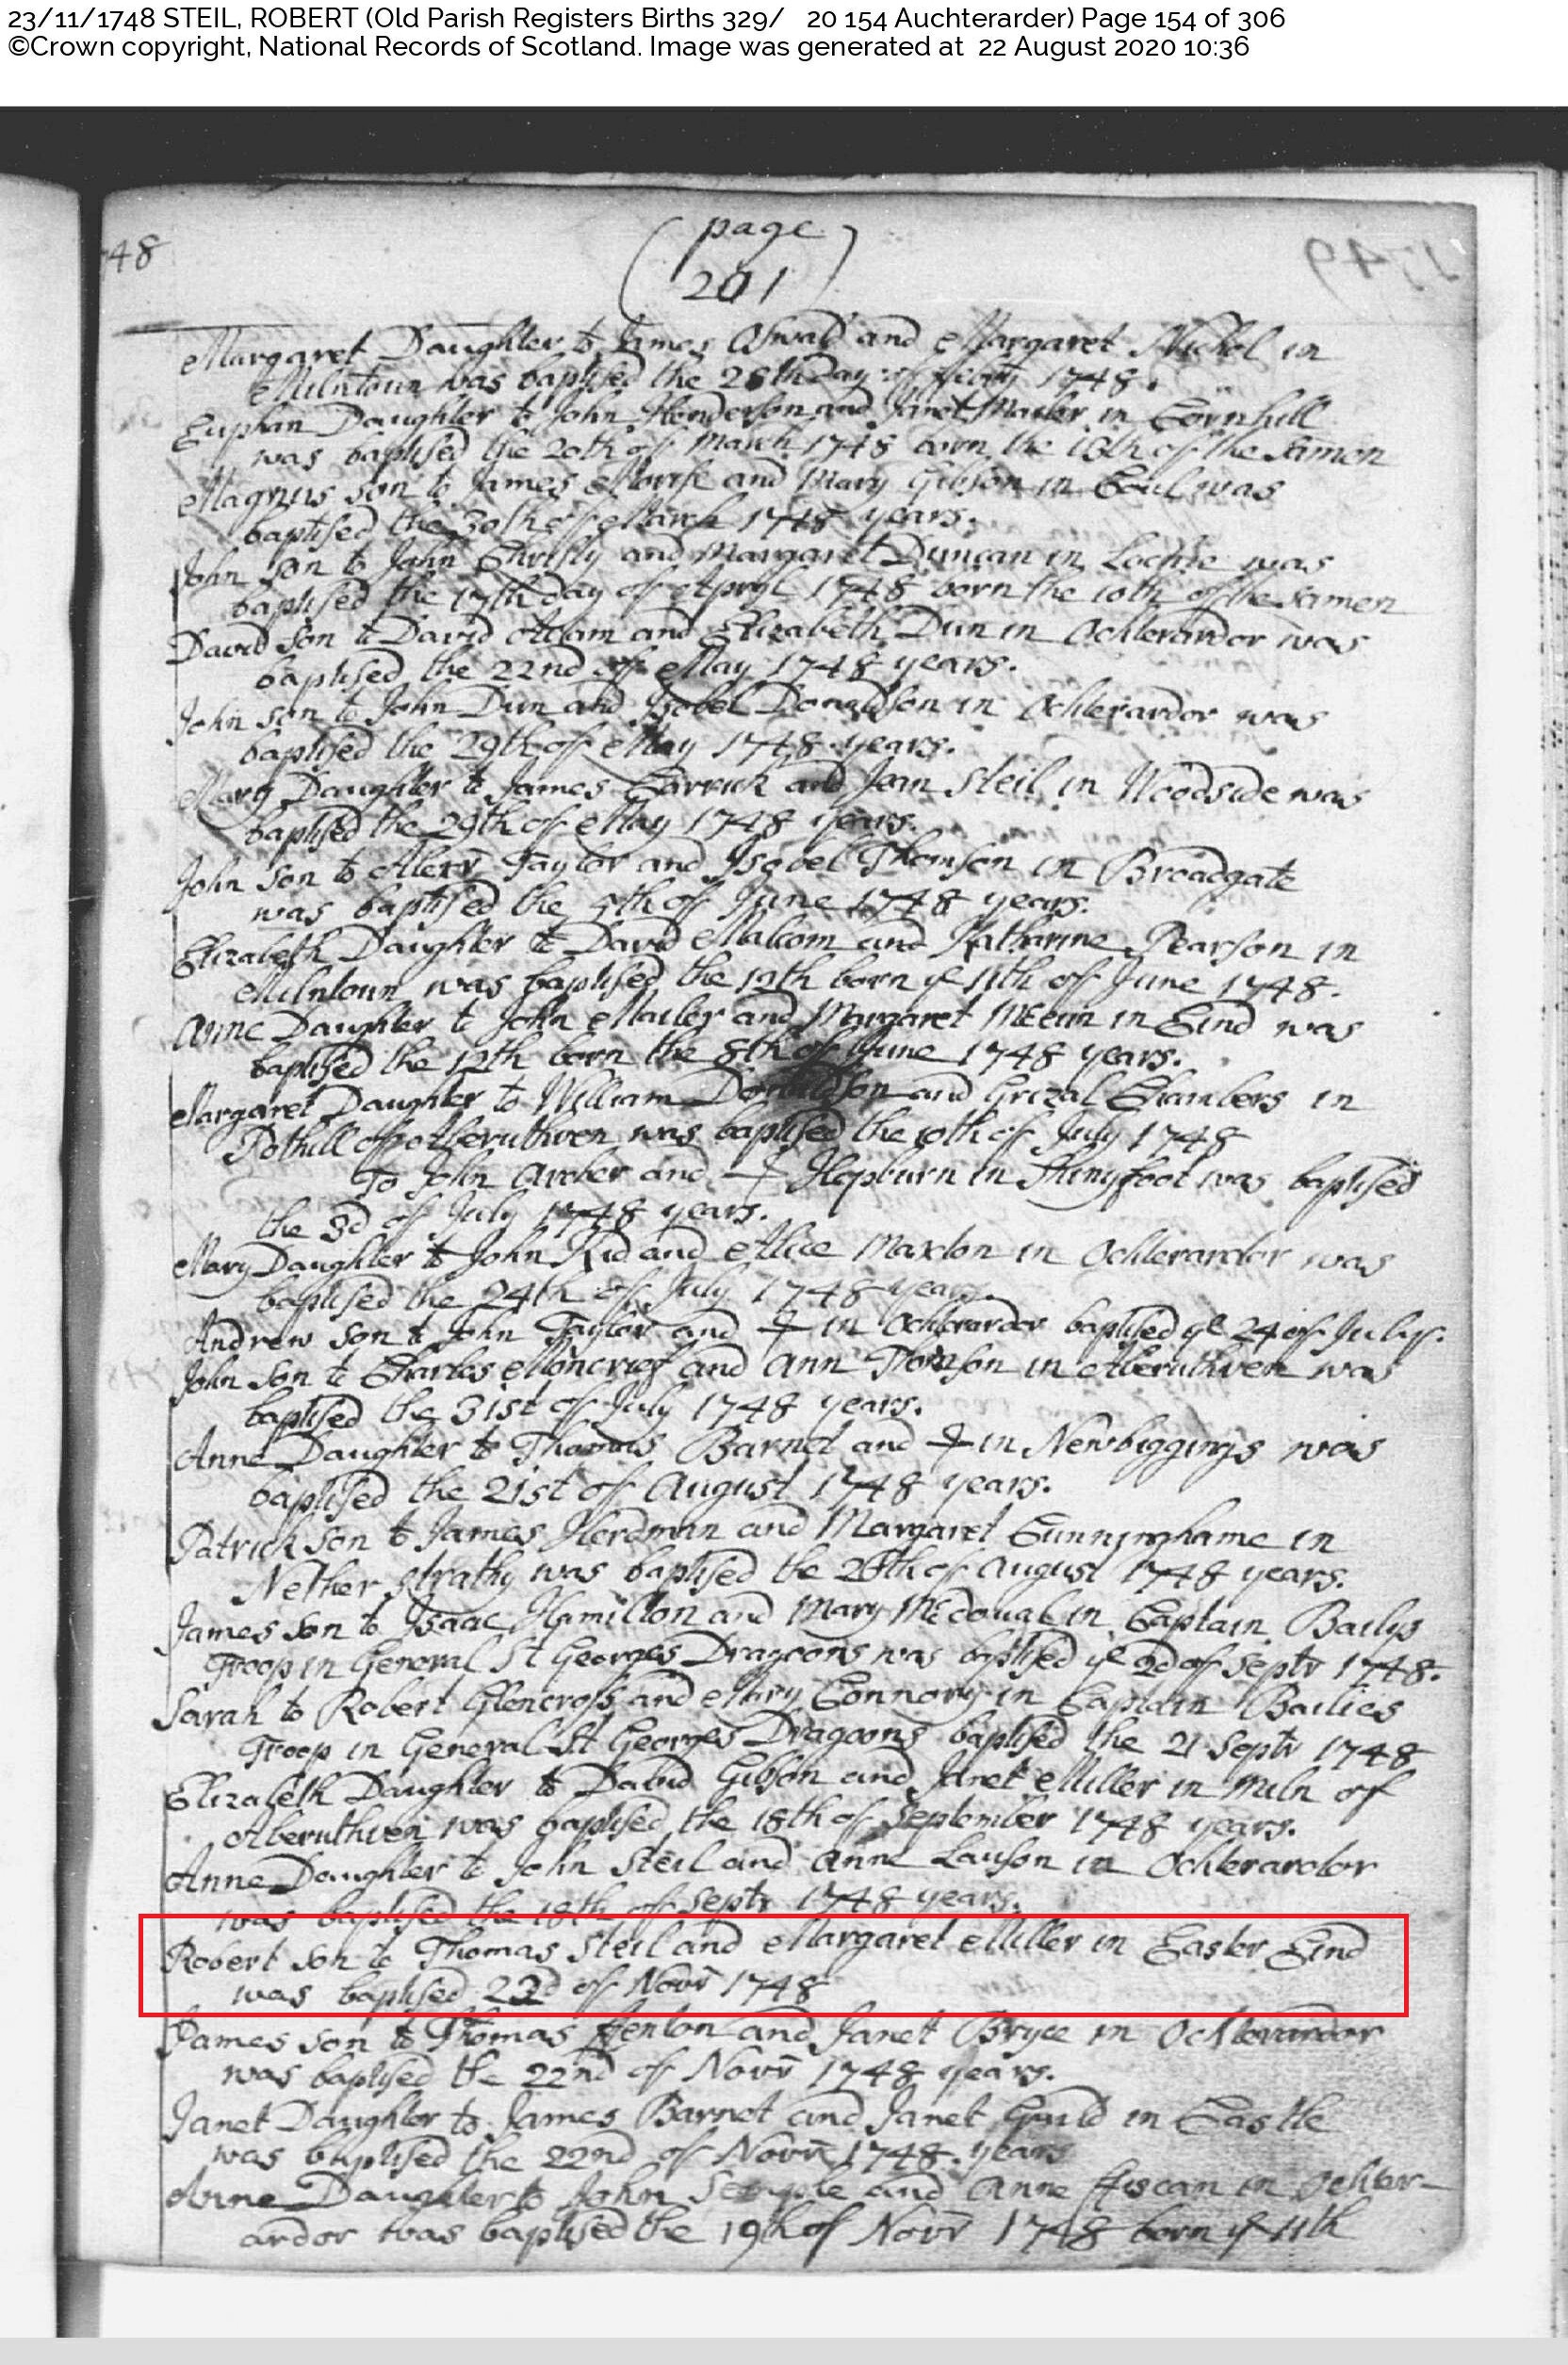 23/11/1748 STEIL, ROBERT (Old Parish Registers Births 329/ 20 154 Auchterarder) Page 154 of 306
©Crown copyright, National Records of Scotland. Image was generated at 22 August 2020 10:36
48
1749
( page )
201
Margaret Daughter to James Oswald and Margaret Nichol in
Milntoun was baptised the 28th Day of 1748.
Euphan Daughter to John Henderson and Janet Mailer in Cornhill
was baptised the 20th of March 1748 born the of the samen
Magnus son to James and Mary Gibson in Coul was
baptised the 30th of March 1748 years.
John son to John Christy and Margaret Duncan in was
baptised the 17th day of Apryl 1748 born the 10th of the samen
David son to David Adam and Elizabeth Dun in Ochterardor was
baptised the 22nd of May 1748 years.
John son to John Dun and Isobel Donaldson in Ochterardor was
baptised the 29th of May 1748 years.
Mary Daughter to James Carrick and Jean Steil in Woodside was
baptised the 29th of May 1748 years.
John son to Alexr Taylor and Isobel Thomson in Broadgate
was baptised the of June 1748 years.
Elizabeth Daughter to David Malcom and Katharine Pearson in
Milntoun was baptised the 12th born ye 11th off June 1748.
Anne Daughter to John Mailer and Margaret in Eind was
baptised the 12th born the 8th of June 1748 years.
Margaret Daughter to William Donaldson and Grizal Chambers in
Pothill of Aberuthven was baptised the 10th of July 1748
To John Archer and + Hepburn in Shinyfoot was baptised
the 3d of July 1748 years.
Mary Daughter to John Kid and Alice Maxton in Ochterardor was
baptised the 24th of July 1748 years.
Andrew son to John Taylor and + in Ochterardor baptised ye 24 of July.
John son to Charles Moncrief and Ann in Aberuthven was
baptised the 31st of July 1748 years.
Anne Daughter to Thomas Barnet and + in Newbiggings was
baptised the 21st of August 1748 years.
Patrick son to James Herdman and Margaret Cunninghame in
Nether Strathy was baptised the 28th of August 1748 years.
James son to Isaac Hamilton and Mary McDougal in Captain Bailys
Troop in General St Georges Dragoons was baptised ye 2d of Septr 1748.
Sarah to Robert Glencross and Mary Connory in Captain Bailies
Troop in General St Georges Dragoons baptised the 21 Septr 1748
Elizabeth Daughter to David Gibson and Janet Miller in Miln of
Aberuthven was baptised the 18th of September 1748 years.
Anne Daughter to John Steil and Anne Lauson in Ochterardor
was baptised the 18th of Septr 1748 years.
Robert son to Thomas Steil and Margaret Miller in Easter Eind
was baptised 23d of Novr 1748
James son to Thomas Fenton and Janet Bryce in Ochterardor
was baptised the 22nd of Novr 1748 years.
Janet Daughter to James Barnet and Janet Guild in Castle
was baptised the 22nd of Novr 1748. years
Anne Daughter to John Semple and Anne in Ochter-
ardor was baptised the 19th of Novr 1748 born ye 11th